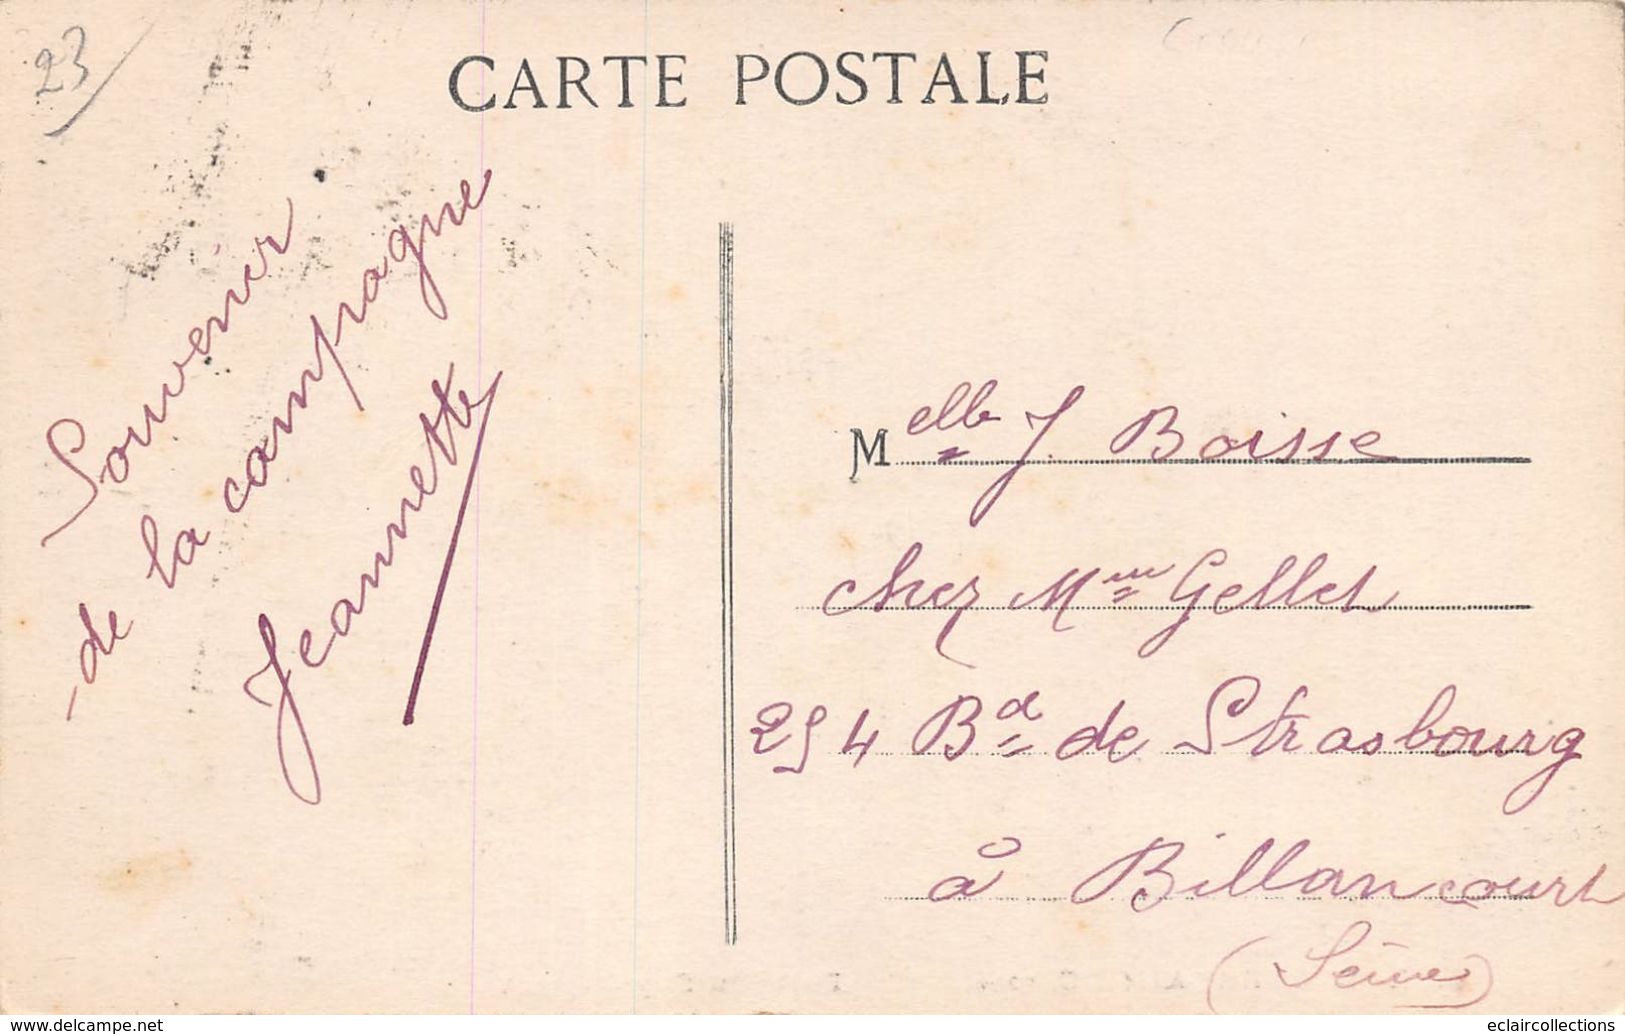 23
CARTE POSTALE
Souvenir
de la campagne
Jeannette
Melle J. Boisse
chez Mme Gellet
254 Bd de Strasbourg
à Billancourt
(Seine)
www.delcampe.net
eclaircollections